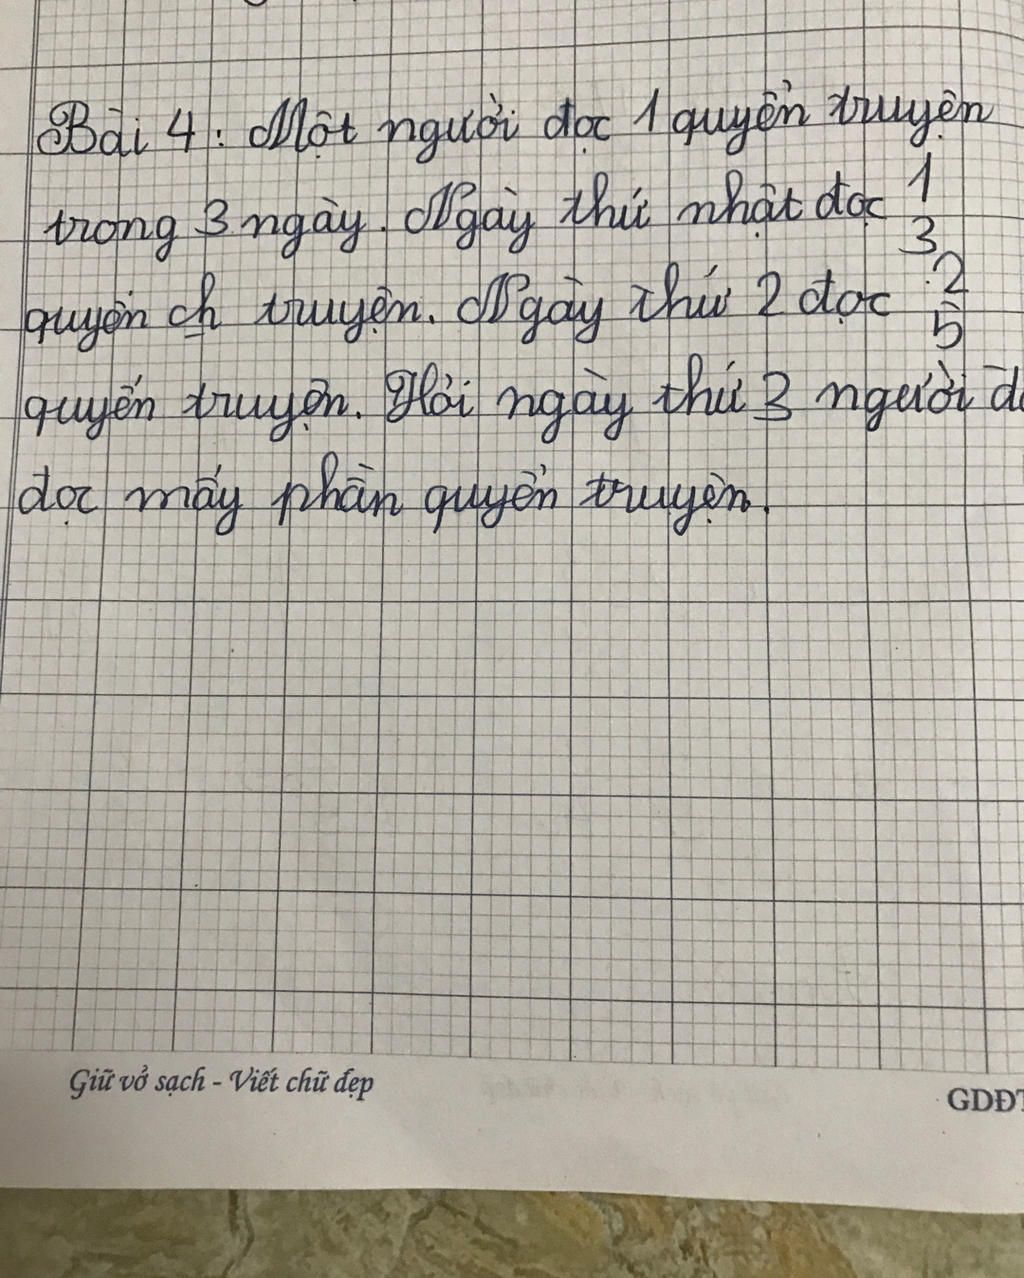 Bài 4: Một người đọc 1 quyển truyện
trong 3 ngày. Ngày thứ nhật đọc 1/3
quyển ch truyện. Ngày thứ 2 đọc 2/5
quyển truyện. Hỏi ngày thứ 3 người đ
đọc mấy phần quyển truyện.
Giữ vở sạch - Viết chữ đẹp
GDĐT